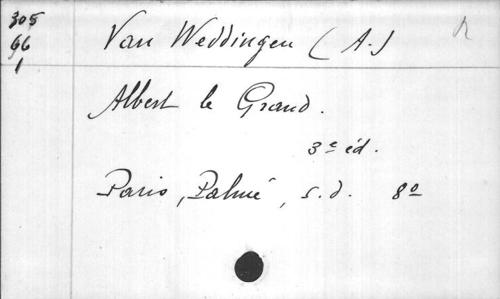 305
96
1
Van Weddingen (A.)
Albert le Grand.
3e éd.
Paris, Palmé, s.d. 8o